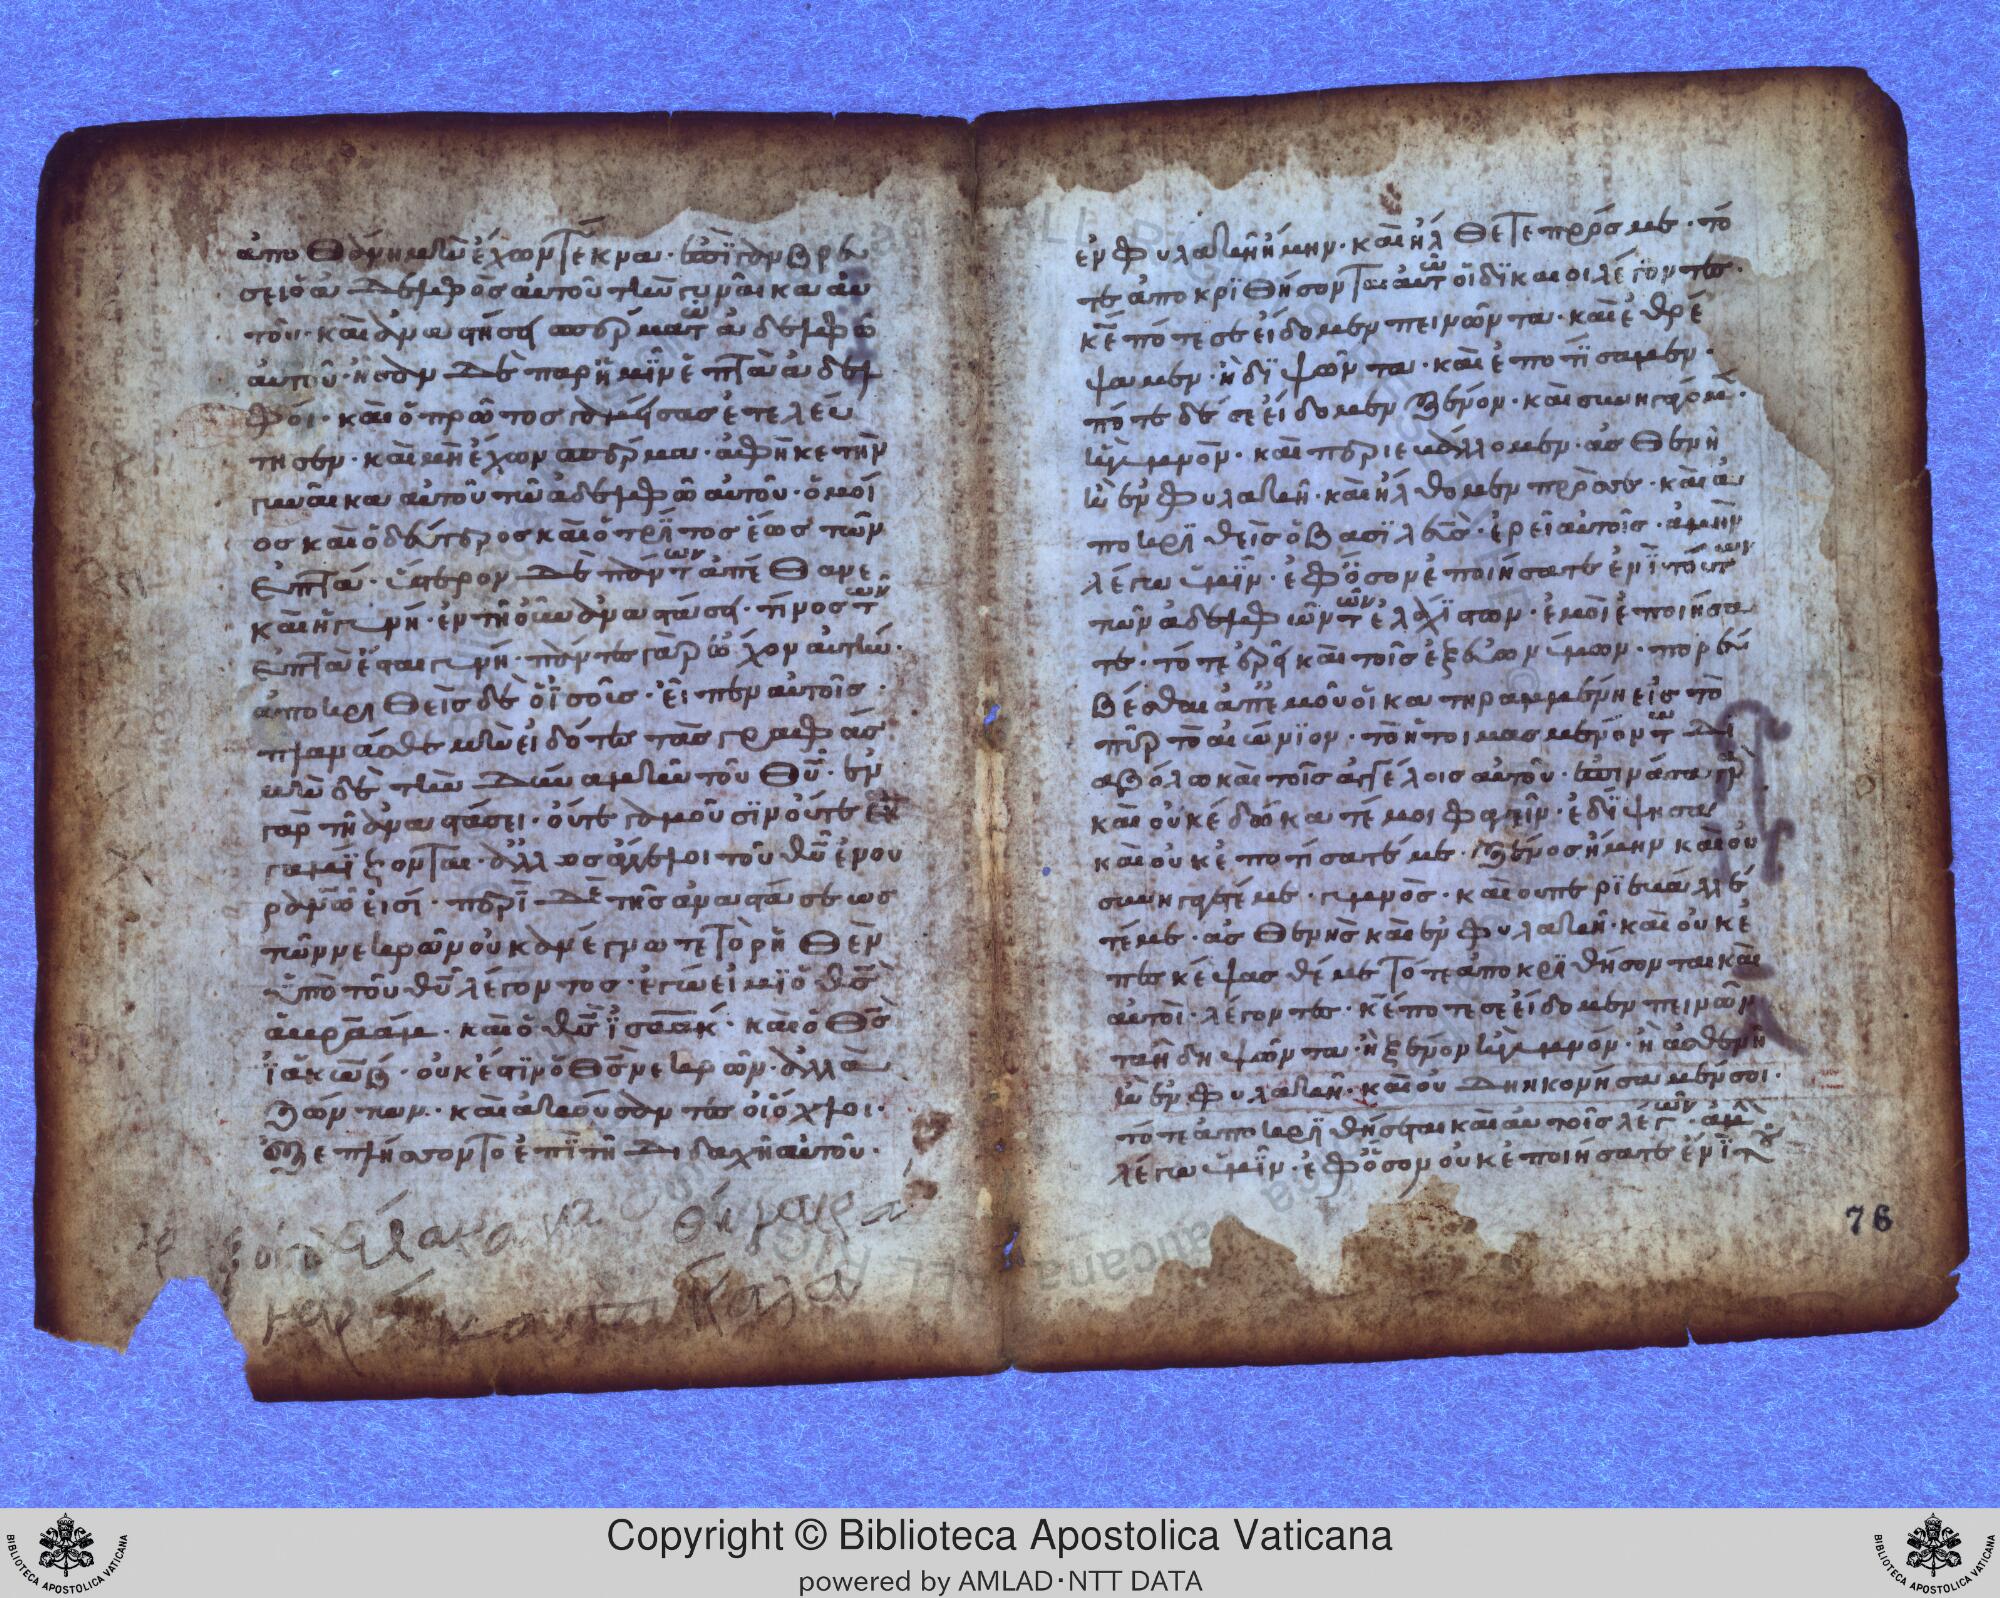 ἀποθάνη μὴ ἔχων τέκνα· ἐπιγαμβρεύ
σει ὁ ἀδελφὸς αὐτοῦ τὴν γυναῖκα αὐ
τοῦ· καὶ ἀναστήση σπέρμα τῶ ἀδελφῶ
αὐτοῦ· ἦσαν δὲ παρ' ἡμῖν ἑπτὰ ἀδελ
φοί· καὶ ὁ πρῶτος γαμήσας ἐτελεύ
τησεν· καὶ μὴ ἔχων σπέρμα· ἀφῆκε τὴν
γυναῖκα αὐτοῦ τῶ ἀδελφῶ αὐτοῦ· ὁμοί
ος καὶ ὁ δεύτερος καὶ ὁ τρῖτος ἕως τῶν
ἑπτά· ὕστερον δὲ πάντων ἀπέθανε
καὶ ἡ γυνή· ἐν τῆ οὖν ἀναστάση· τίνος τῶν
ἑπτὰ ἔσται γυνή· πάντες γὰρ ἔσχον αὐτήν·
ἀποκριθεὶς δὲ ὁ ἰς· εἶπεν αὐτοῖς·
πλανάσθε μὴ εἰδότες τὰς γραφάς
μὴ δὲ τὴν δύναμιν τοῦ θυ· ἐν
γὰρ τῆ ἀναστάσει· οὔτε γαμοῦσιν οὔτε ἐκ
γαμίζονται· ἀλλ' ὡς ἄγγελοι τοῦ θυ ἐν οὐ
ρανῶ εἰσί· περὶ δὲ τῆς ἀναστάσεως
τῶν νεκρῶν οὐκ ἀνέγνωτε τὸ ρηθὲν
ὑπὸ τοῦ θυ λέγοντος· ἐγώ εἰμι ὁ θς
ἀβραάμ· καὶ ὁ θς ἰσαάκ· καὶ ὁ θς
ἰακώβ· οὐκ ἔστιν ὁ θς νεκρῶν· ἀλλὰ
ζώντων· καὶ ἀκούσαντες οἱ ὄχλοι·
ἐξεπλήσσοντο ἐπὶ τῆ διδαχῆ αὐτοῦ·
ἐν φυλακῆ ἤμην· καὶ ἤλθετε πρός με· τό
τε ἀποκριθήσονται αὐτῶ οἱ δίκαιοι λέγοντες·
κε πότε σε εἴδομεν πεινῶντα· καὶ ἐθρέ
ψαμεν· ἢ διψῶντα· καὶ ἐποτίσαμεν·
πότε δέ σε εἴδομεν ξένον· καὶ συνηγάγομεν·
ἢ γυμνὸν· καὶ περιεβάλλομεν· ἀσθενῆ
ἢ ἐν φυλακῆ· καὶ ἤλθομεν πρὸς σε· καὶ ἀ
ποκριθεὶς ὁ βασιλεὺς· ἐρεῖ αὐτοῖς· ἀμὴν
λέγω ὑμῖν· ἐφ' ὅσον ἐποιήσατε ἑνὶ τούτων
τῶν ἀδελφῶν τῶν ἐλαχίστων· ἐμοὶ ἐποιήσα
τε· τότε ἐρεῖ καὶ τοῖς ἐξ εὐωνύμων· πορεύ
εσθαι ἀπ' ἐμοῦ οἱ κατηραμμένη εἰς τὸ
πῦρ τὸ αἰώνιον· τὸ ἡτοιμασμένον τῶ δι
αβόλω καὶ τοῖς ἀγγέλοις αὐτοῦ· ἐπίνασα γὰρ
καὶ οὐκ ἐδώκατέ μοι φαγεῖν· ἐδίψησα
καὶ οὐκ ἐποτίσατέ με· ξένος ἤμην καὶ οὐ
συνηγάγετέ με· γυμνὸς· καὶ ου περιεβάλλε
τέ με· ἀσθενὴς καὶ ἐν φυλακῆ· καὶ οὐκ ἐ
πεσκέψασθέ με τότε ἀποκριθήσονται καὶ
αὐτοὶ· λέγοντες· κε πότε σε εἴδομεν πεινῶν
τα ἢ διψῶντα· ἢ ξένον ἢ γυμνὸν· ἢ ἀσθενῆ
ἢ ἐν φυλακῆ· καὶ οὐ διηκονήσαμέν σοι·
τότε ἀποκριθήσεται καὶ αὐτοῖς λέγων· ἀμὴν
λέγω ὑμῖν· ἐφ' ὅσον οὐκ ἐποιήσατε ἑνὶ τού
76
Copyright © Biblioteca Apostolica Vaticana
powered by AMLAD·NTT DATA
BIBLIOTECA APOSTOLICA VATICANA
BIBLIOTECA APOSTOLICA VATICANA